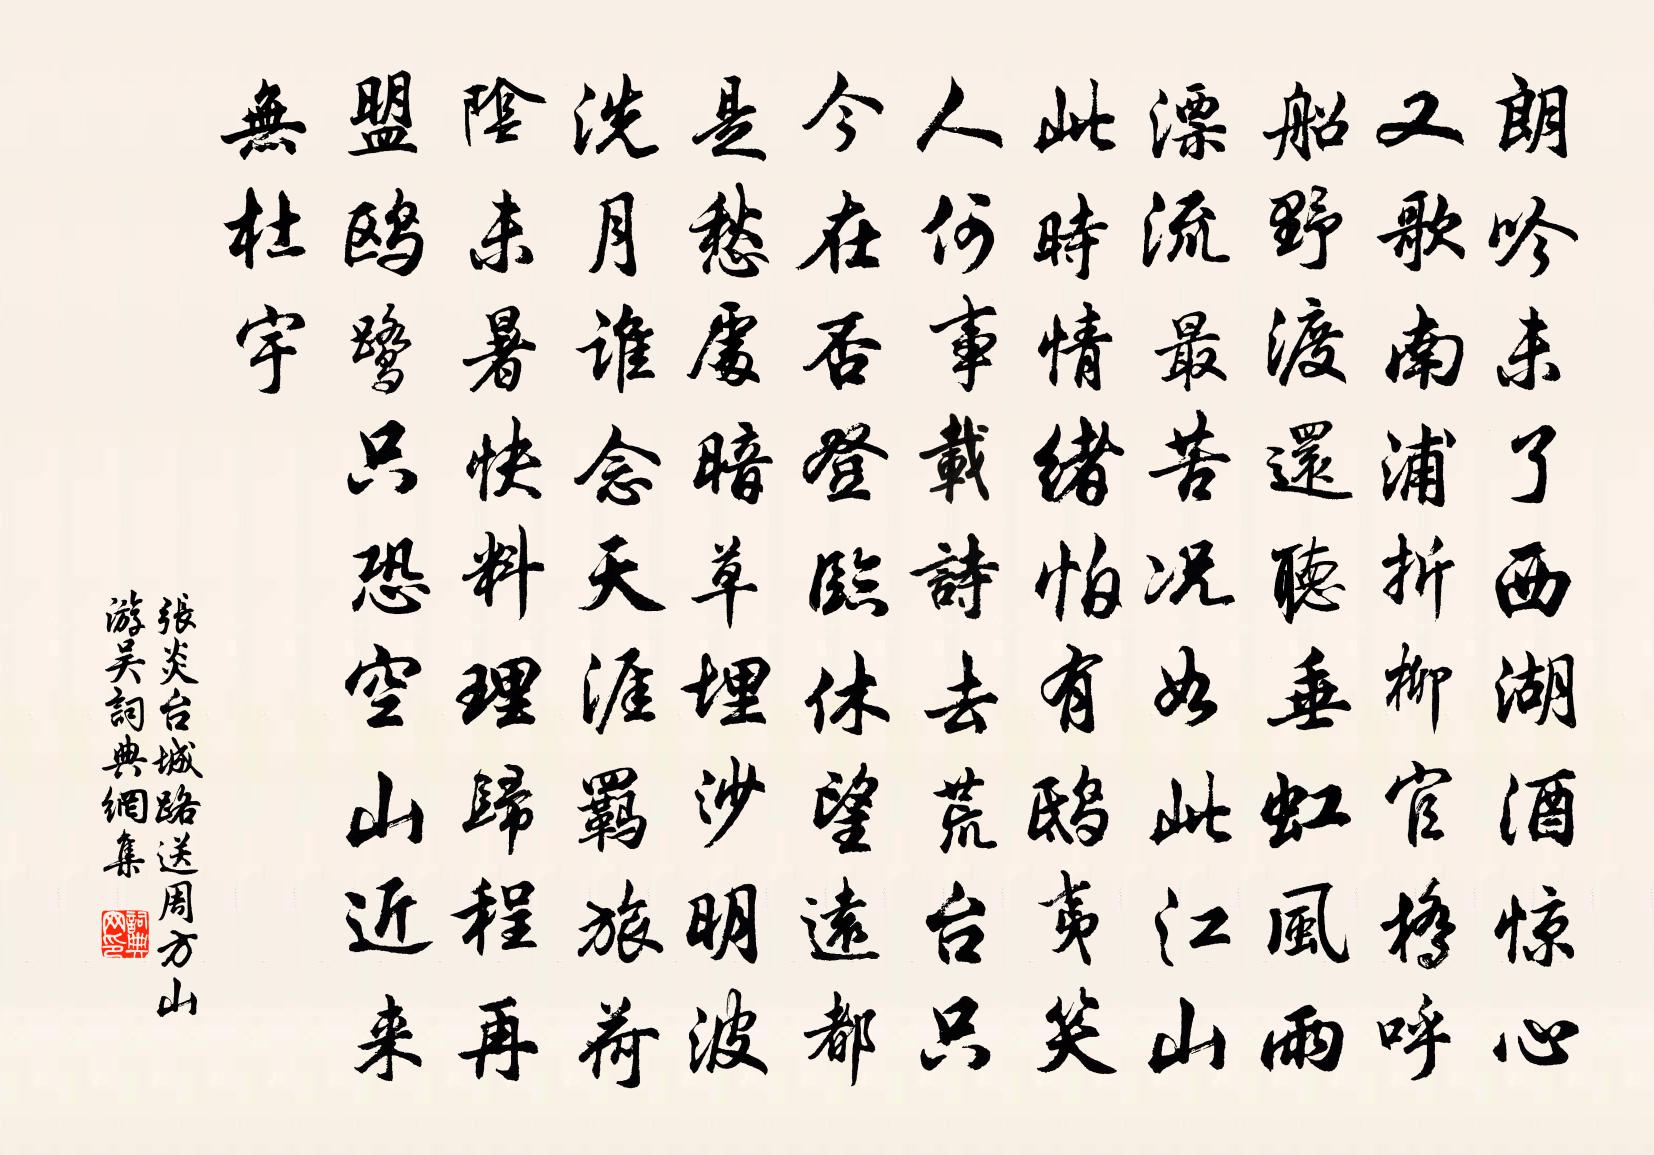 朗吟未了西湖酒惊心
又歌南浦折柳官橋呼
船野渡還聽垂虹風雨
漂流最苦况如此江山
此時情緒怕有鴟夷笑
人何事載詩去荒台只
今在否登臨休望遠都
是愁處暗草埋沙明波
洗月誰念天涯羇旅荷
陰未暑快料理歸程再
盟鸥鹭只恐空山近来
無杜宇
張炎台城路送周方山
游吴詞典網集
詞典网印